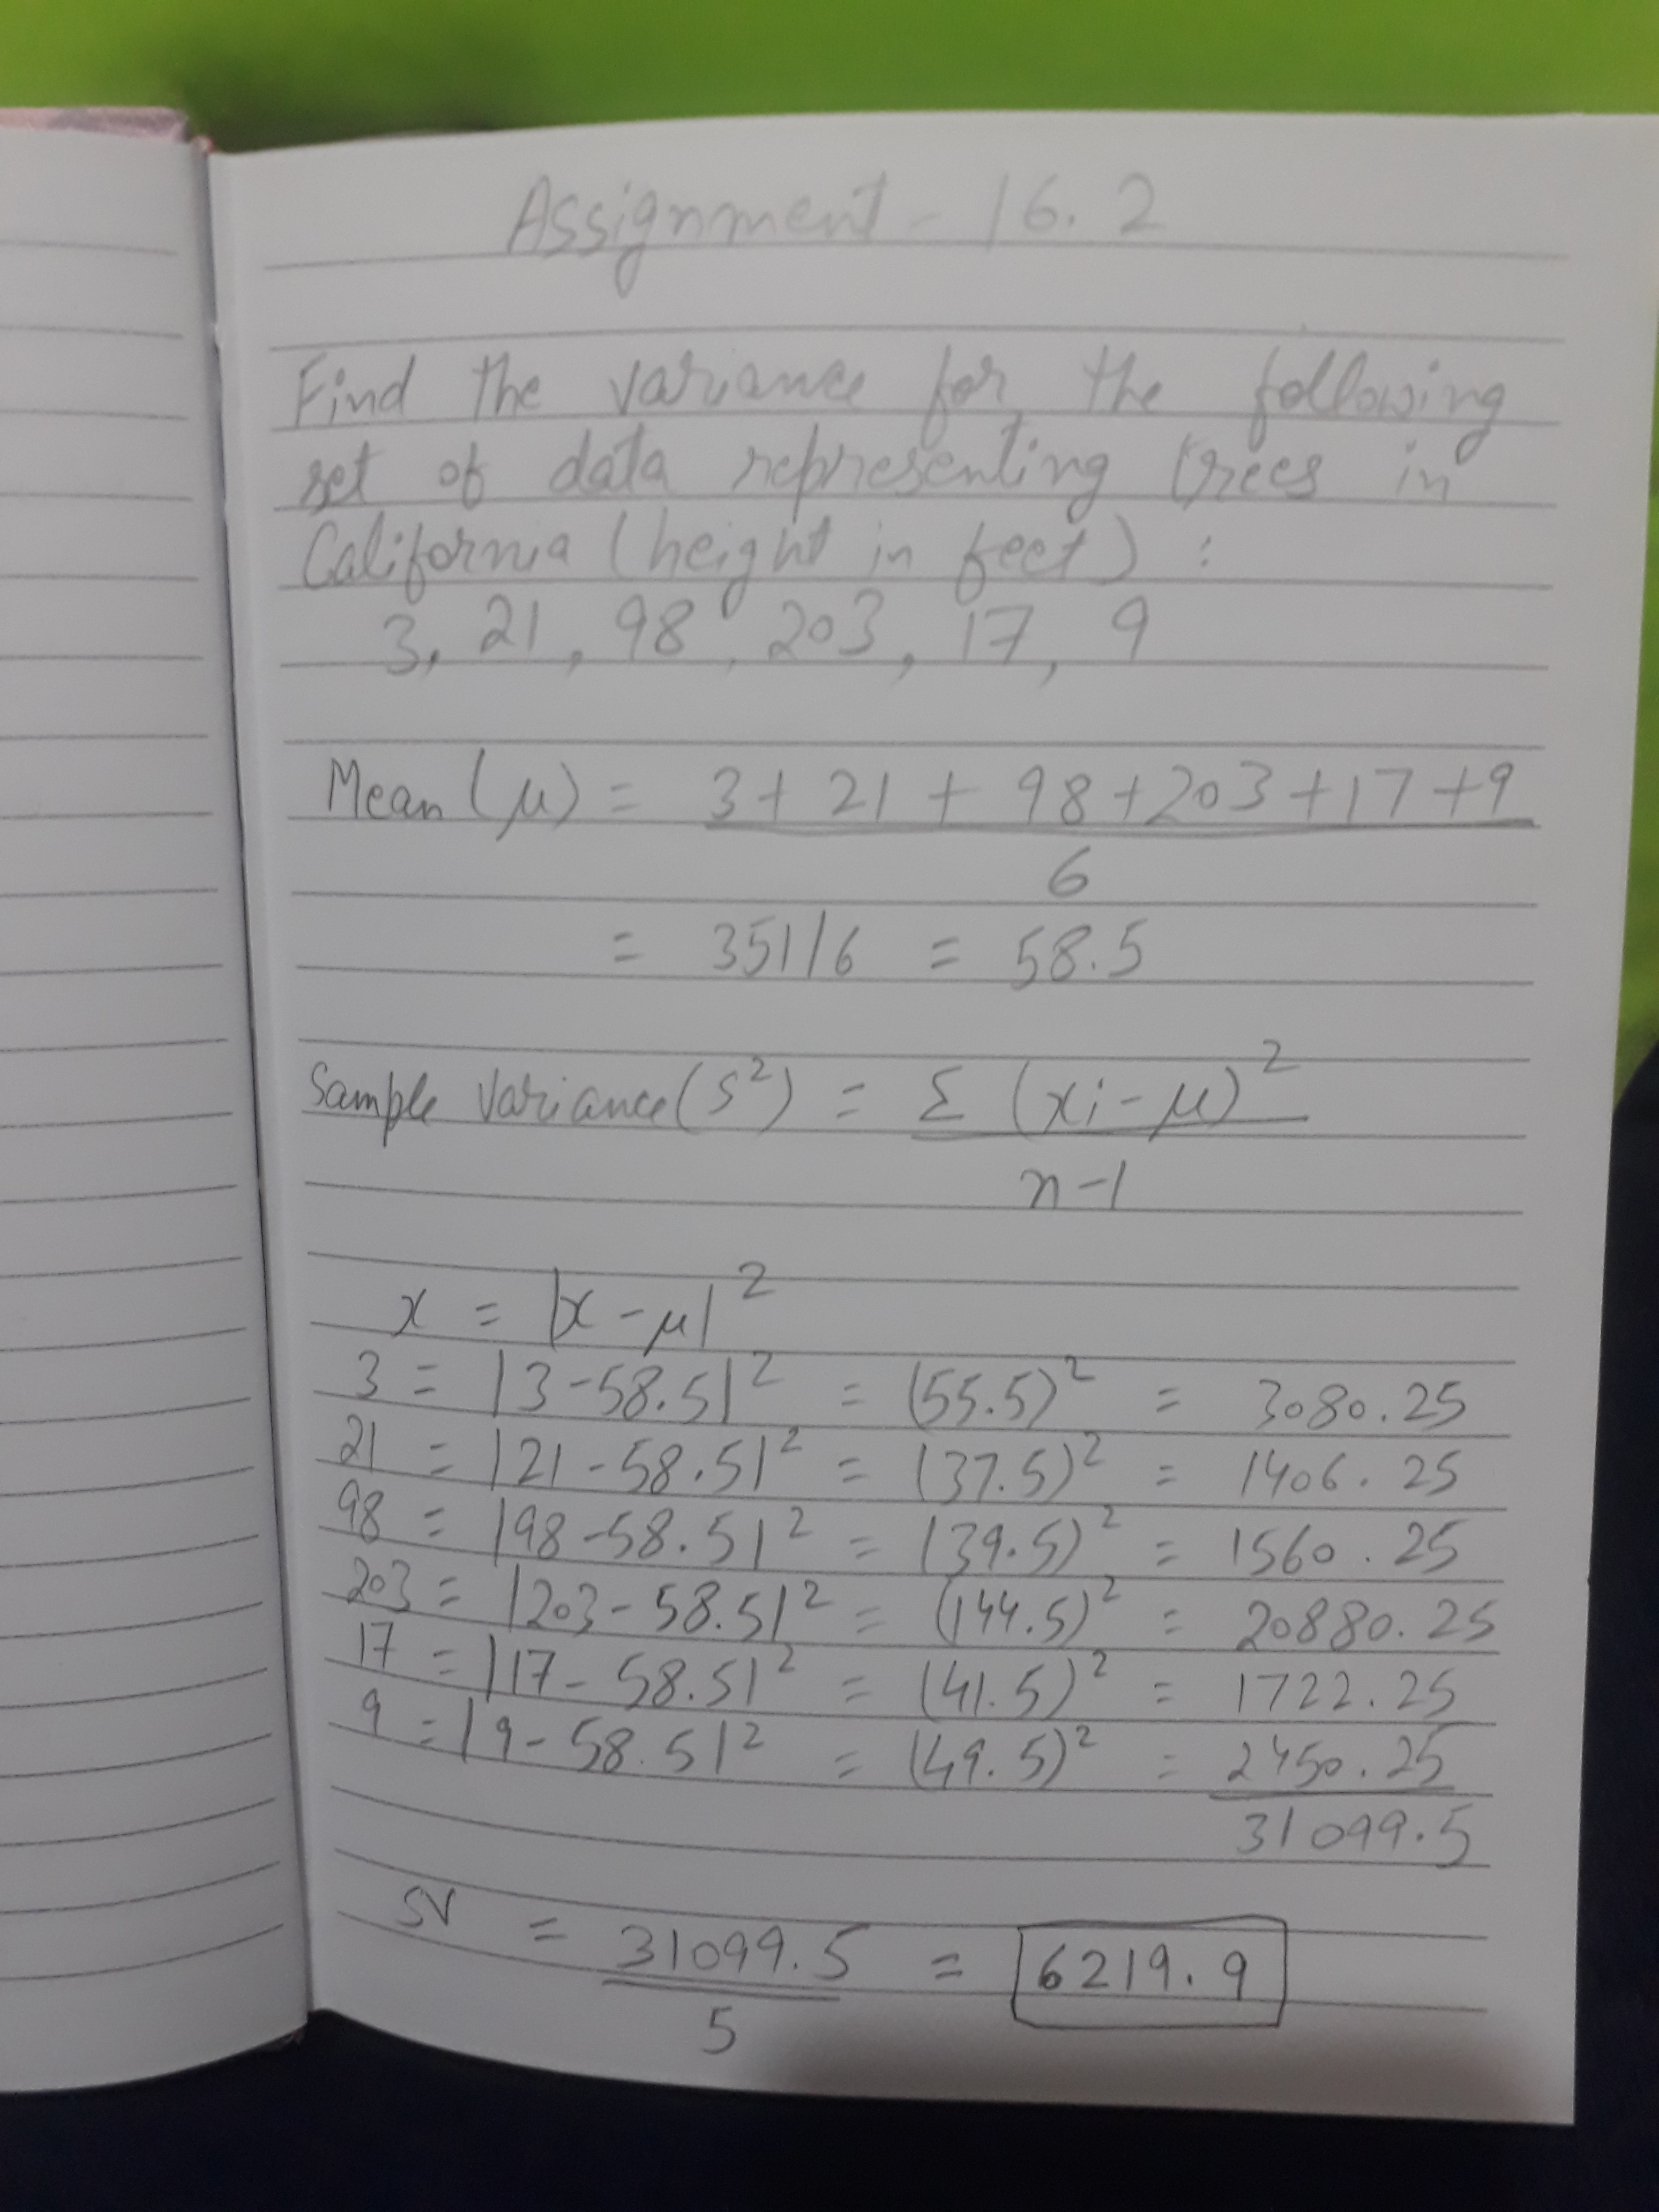 Assignment - 16.2
Find the variance for the following
set of data representing trees in
California (height in feet) :
3, 21, 98, 203, 17, 9
Mean (μ) = 3 + 21 + 98 + 203 + 17 + 9
6
= 351/6 = 58.5
Sample Variance (S²) = Σ (xi - μ)²
n - 1
x = |x - μ|²
3 = |3 - 58.5|² = (55.5)² = 3080.25
21 = |21 - 58.5|² = (37.5)² = 1406.25
98 = |98 - 58.5|² = (39.5)² = 1560.25
203 = |203 - 58.5|² = (144.5)² = 20880.25
17 = |17 - 58.5|² = (41.5)² = 1722.25
9 = |9 - 58.5|² = (49.5)² = 2450.25
31099.5
SV = 31099.5 = 6219.9
5